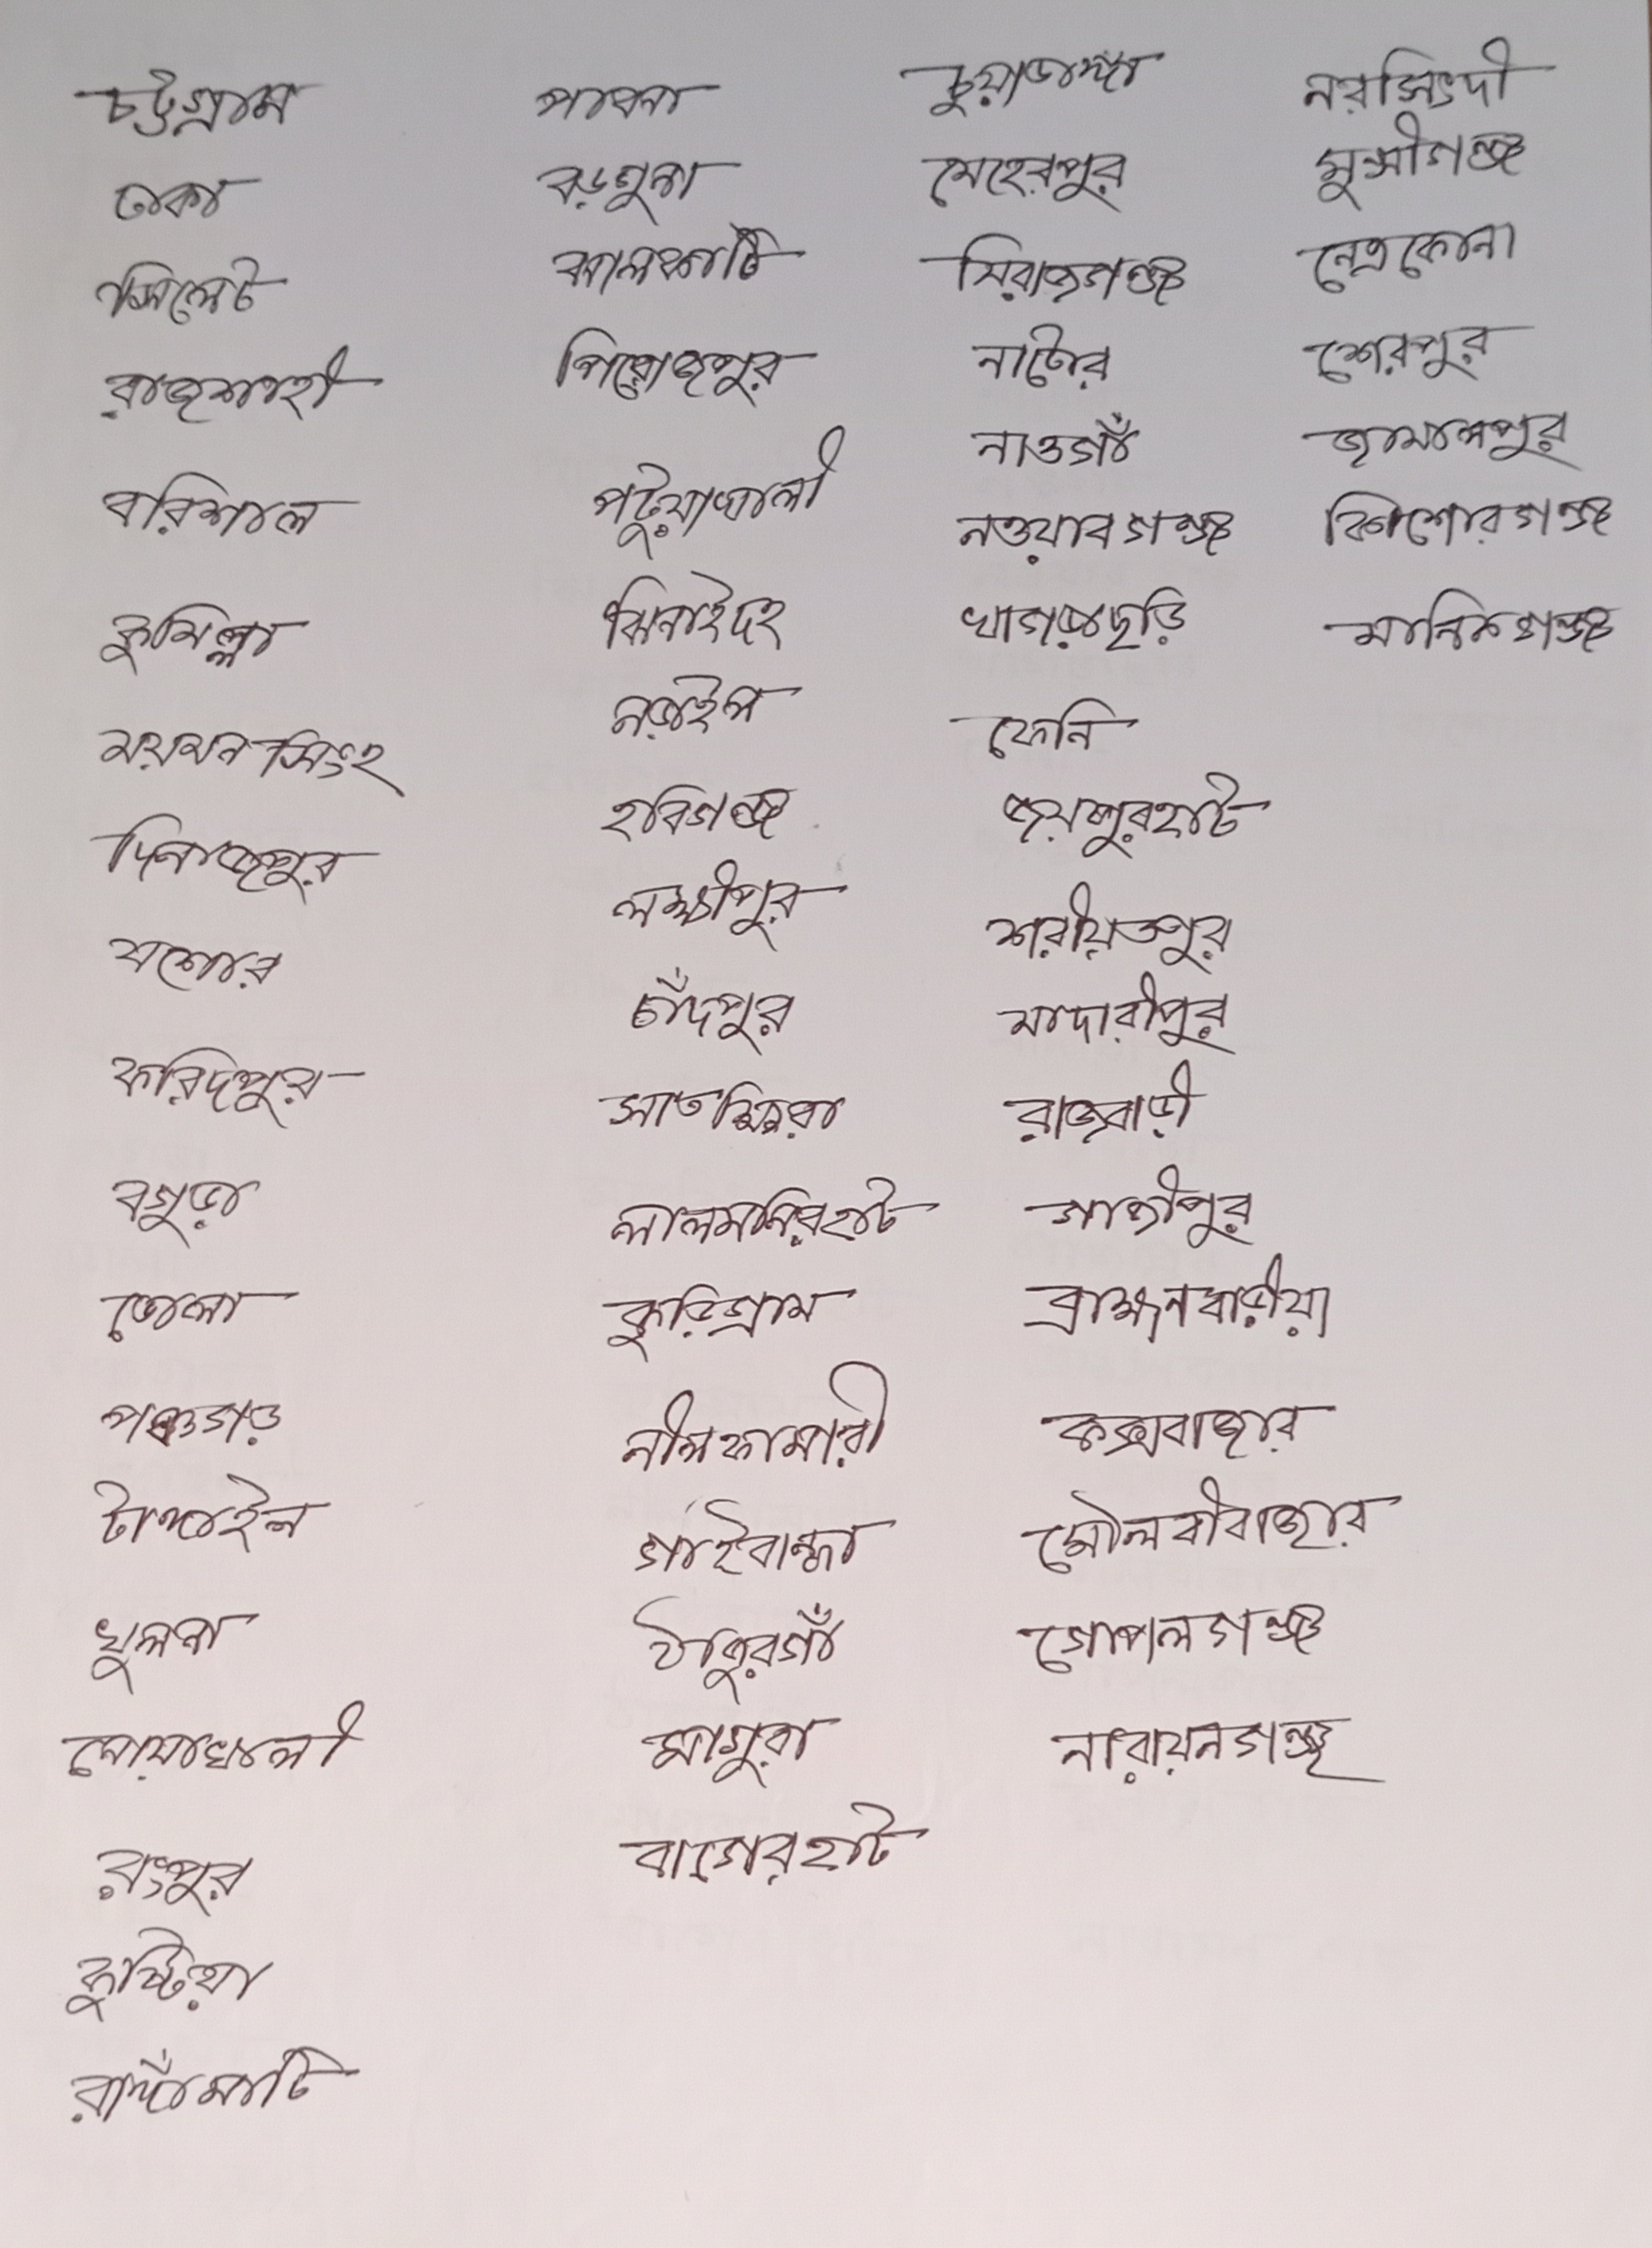 চট্টগ্রাম
ঢাকা
সিলেট
রাজশাহী
বরিশাল
কুমিল্লা
ময়মনসিংহ
দিনাজপুর
যশোর
ফরিদপুর
বগুড়া
ভোলা
পঞ্চগড়
টাঙ্গাইল
খুলনা
নোয়াখালী
রংপুর
কুষ্টিয়া
রাঙ্গাঁমাটি
পাবনা
বড়গুনা
ঝালকাঠি
পিরোজপুর
পটুয়াখালী
ঝিনাইদহ
নড়াইল
হবিগঞ্জ
লক্ষীপুর
চাঁদপুর
সাতক্ষিরা
লালমনিরহাট
কুড়িগ্রাম
নীলফামারী
গাইবান্ধা
ঠাকুরগাঁ
মাগুরা
বাগেরহাট
চুয়াডাঙ্গা
মেহেরপুর
সিরাজগঞ্জ
নাটোর
নাওগাঁ
নওয়াবগঞ্জ
খাগড়াছড়ি
ফেনি
জয়পুরহাট
শরীয়তপুর
মাদারীপুর
রাজবাড়ী
গাজীপুর
ব্রাহ্মনবাড়ীয়া
কক্সবাজার
মৌলবীবাজার
গোপালগঞ্জ
নারায়নগঞ্জ
নরসিংদী
মুন্সীগঞ্জ
নেত্রকোনা
শেরপুর
জামালপুর
কিশোরগঞ্জ
মানিকগঞ্জ